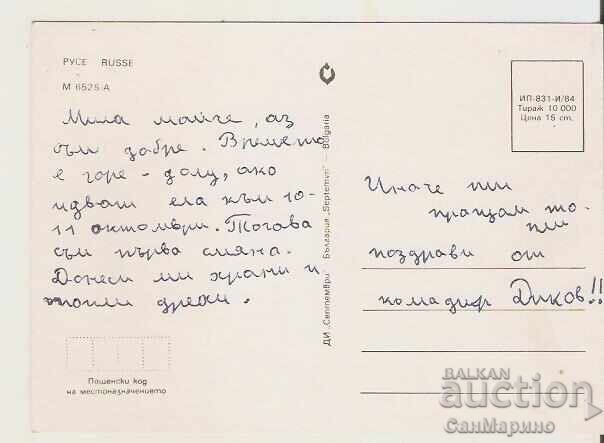 РУСЕ RUSSE
М 6525-А
Мила майче, аз
съм добре. Времето
е горе - долу, ако
идваш ела към 10-
11 октомври. Тогава
съм първа смяна.
Донеси ми храни и
топли дрехи.
Пощенски код
на местоназначението
ДИ „Септември" — България „Septemvri" — Bulgaria
ИП-831-И/84
Тираж 10 000
Цена 15 ст.
Иначе ти
пращам то-
пли
поздрави от
командир Диков!!
BALKAN
auction
СанМарино